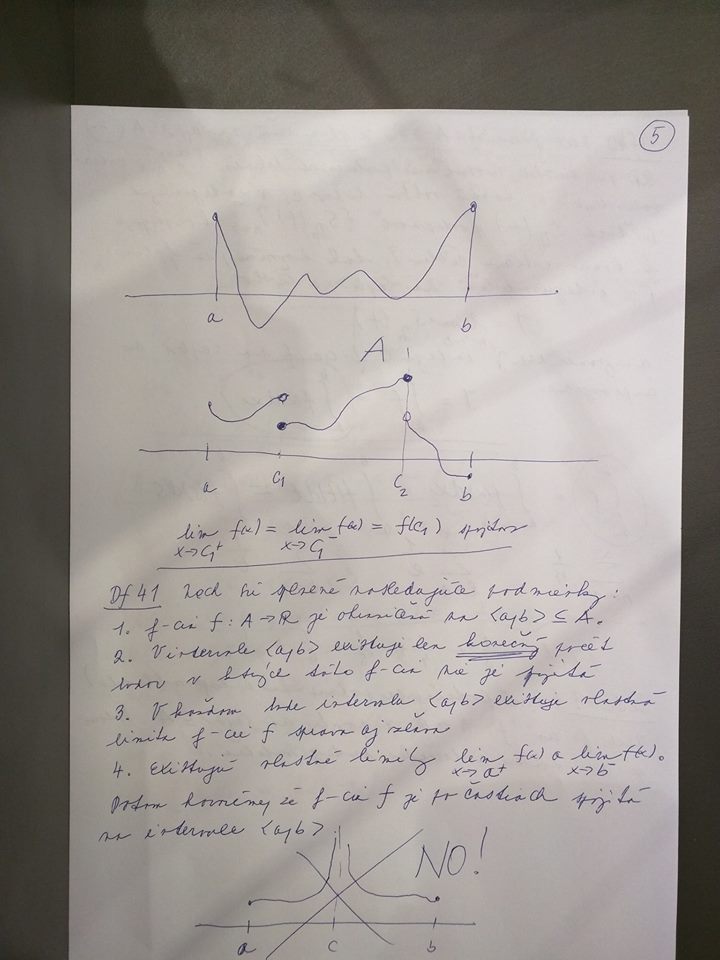 5
a b
A
a c₁ c₂ b
lim x→c₁⁺ f(x) = lim x→c₁⁻ f(x) = f(c₁) spojitosť
Df 41 Nech sú splnené nasledujúce podmienky:
1. f-cia f: A→R je ohraničená na <a,b> ⊆ A.
2. V intervale <a,b> existuje len konečný počet
bodov v ktorých táto f-cia nie je spojitá
3. V každom bode intervalu <a,b> existuje vlastná
limita f-cie f sprava aj zľava
4. Existujú vlastné limity lim x→a⁺ f(x) a lim x→b⁻ f(x).
Potom hovoríme, že f-cia f je po častiach spojitá
na intervale <a,b>
NO!
a c b